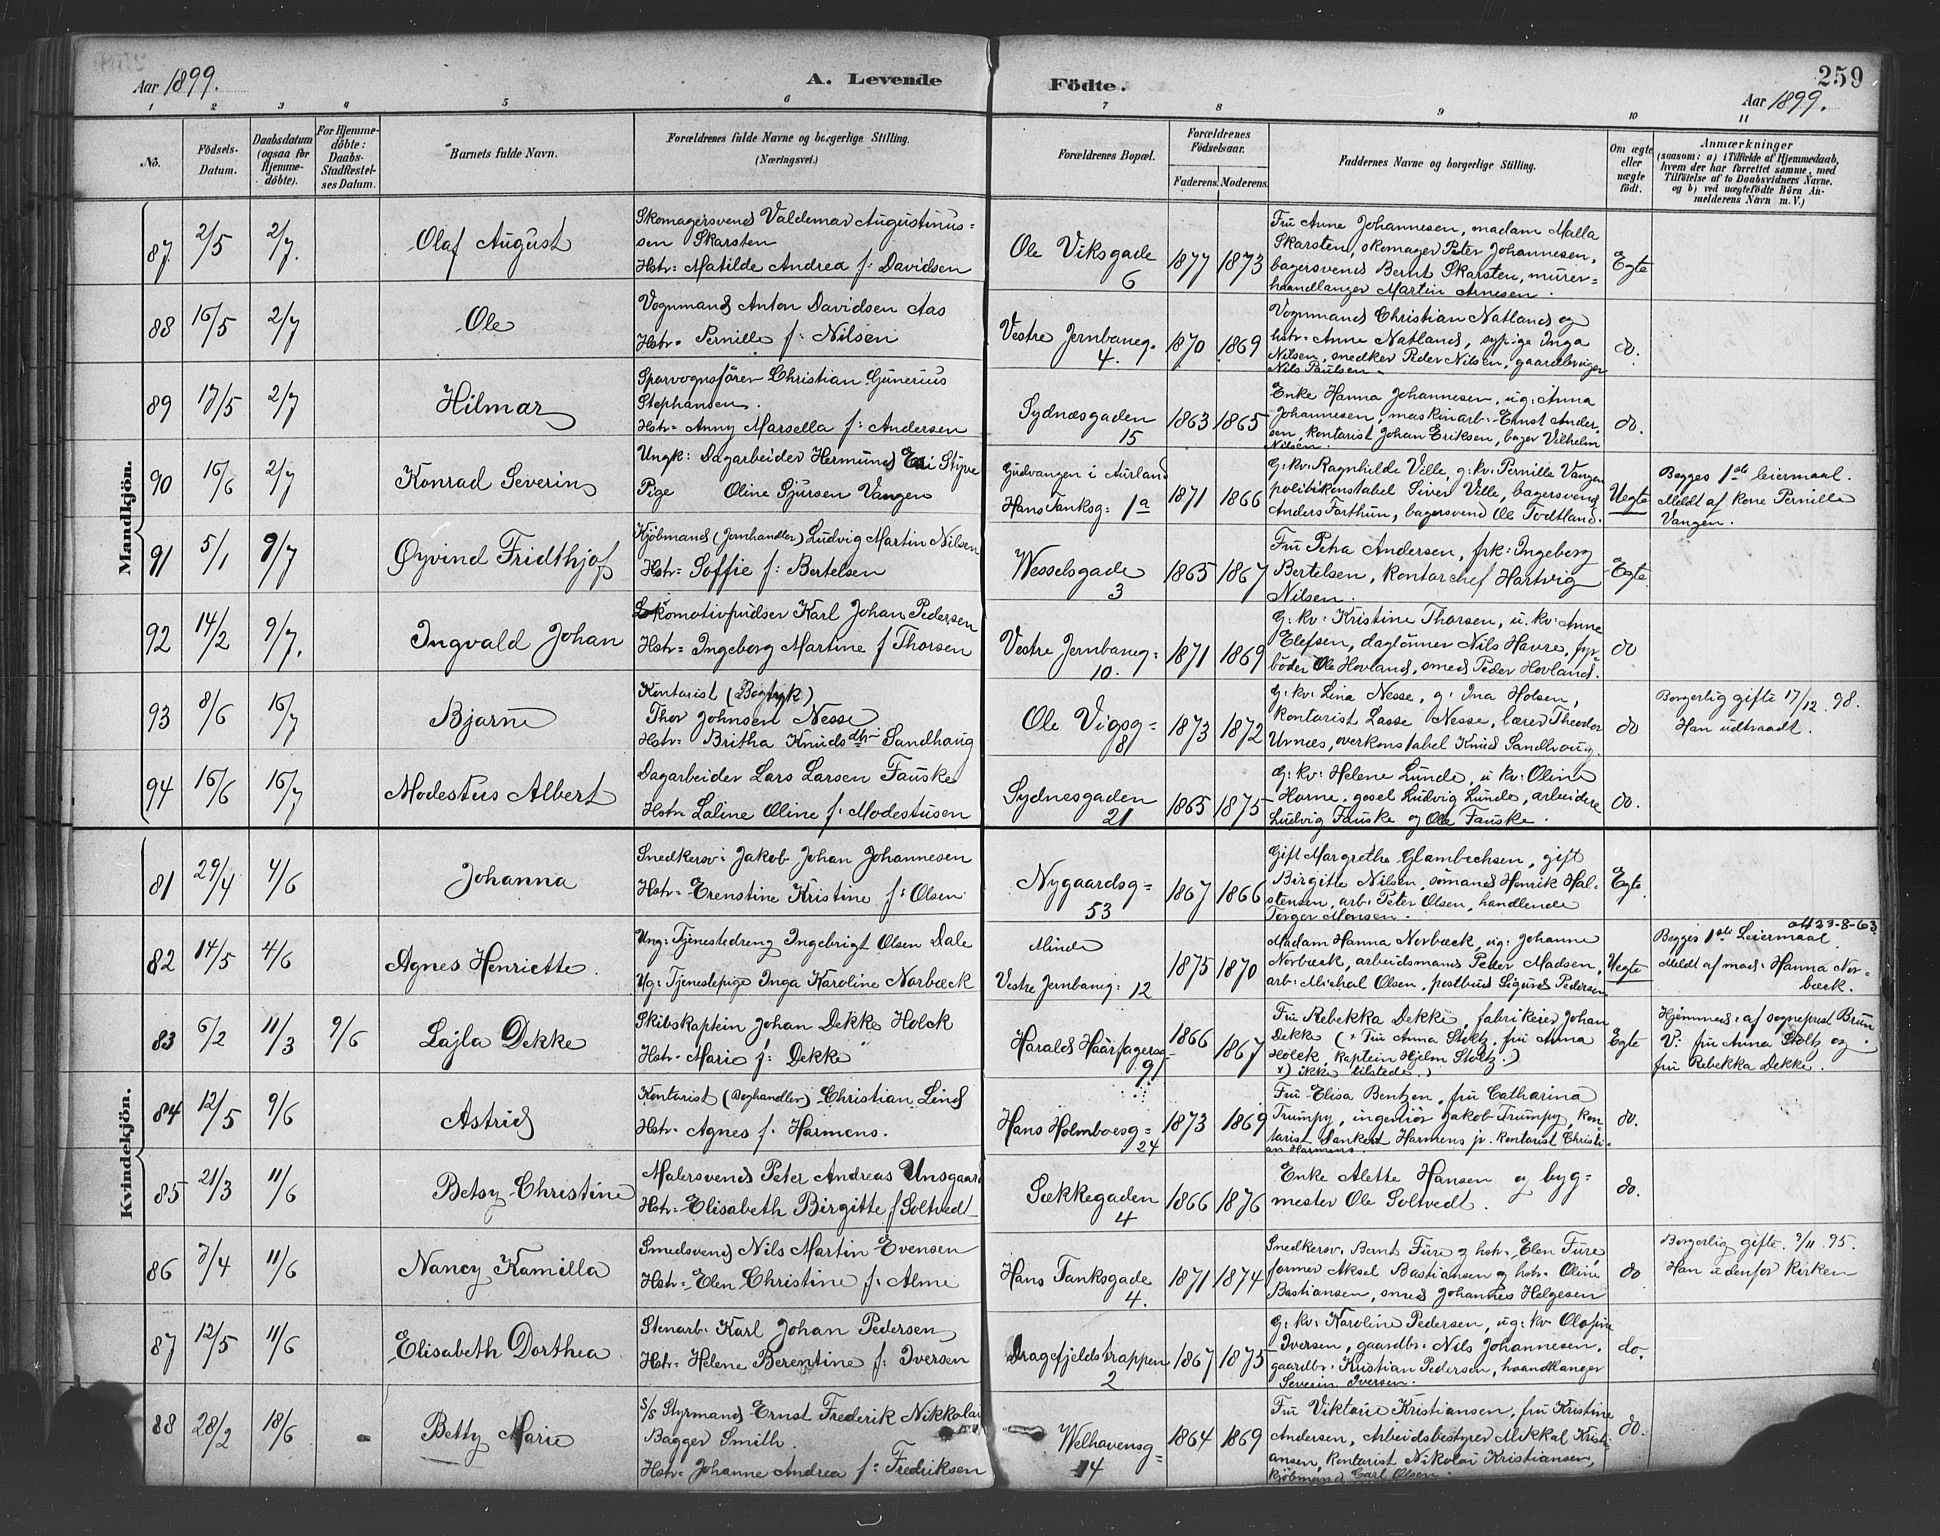 Aar 1899.
A. Levende Födte.
259
Aar 1899.
1 2 3 4 5 6 7 8 9 10 11
No.
Födsels-Datum.
Daabsdatum (ogsaa for Hjemme-döbte).
For Hjemme-döbte: Daabs-Stadfæstel-ses Datum.
Barnets fulde Navn.
Forældrenes fulde Navne og borgerlige Stilling. (Næringsvei.)
Forældrenes Bopæl.
Forældrenes Födselsaar.
Faderens. Moderens.
Faddernes Navne og borgerlige Stilling.
Om ægte eller uægte födt.
Anmærkninger
(saasom: a) i Tilfælde af Hjemmedaab, hvem der har forrettet samme, med Tilföielse af to Daabsvidners Navne, og b) ved uægtefödte Börn An-melderens Navn m. V.)
Mandkjön.
87 2/5 2/7. Olaf August
Skomagersvend Valdemar Augustinus=
sen Skarsten
Hstr= Matilde Andrea f: Davidsen
Ole Viksgade 6
1877 1873
Fru Anne Johannesen, madam Malla
Skarsten, skomager Peter Johannesen,
bagersvend Bernt Skarsten, murer=
haandlanger Martin Arnesen.
Egte
88 16/5 2/7 Ole
Vognmand Anton Davidsen Aas
Hstr= Pernille f: Nilsen
Vestre Jernbaneg. 4.
1870 1869
Vognmand Christian Natland og
hstr= Anne Natland, sypige Inga
Nilsen, snedker Peder Nilsen, gaardbruger
Nils Paulsen.
do.
89 17/5 2/7 Hilmar
Sporvognsförer Christian Gunerius
Stephansen.
Hstr= Anny Marsella f: Andersen
Sydnæsgaden 15
1863 1865
Enke Hanna Johannesen, ug: Anna
Johannesen, maskinarb: Ernst Ander
sen, kontorist Johan Eriksen, bager Vilhelm
Nilsen.
do.
90 16/6 2/7 Konrad Severin
Ungk: Dagarbeider Hermund Styve
Pige Oline Sjursen Vangen
Gudvangen i Aurland
Hans Tanksg: 1a
1871 1866
G: kv: Ragnhilde Ville, g: kv: Pernille Vangen
politikonstabel Siver Ville, bagersvend
Anders Farthun, bagersvend Ole Todtland.
Uegte
Begges 1ste leiermaal.
Meldt af kone Pernille
Vangen.
91 5/1 9/7 Øyvind Fridthjof
Kjöbmand (Jernhandler) Ludvig Martin Nilsen
Hstr= Soffie f: Bertelsen
Wesselsgade 3
1865 1867
Fru Petra Andersen, frk: Ingeborg
Bertelsen, kontorchef Hartvig
Nilsen.
Egte
92 14/2 9/7. Ingvald Johan
Lokomotivpudser Karl Johan Pedersen
Hstr= Ingeborg Martine f Thorsen
Vestre Jernbaneg: 10.
1871 1869
G: kv: Kristine Thorsen, u. kv: Anne
Elefsen, daglönner Nils Havre, fyr=
böder Ole Hovland, smed Peder Hovland.
do
93 8/6 16/7 Bjarne
Kontorist
Thor Johnsen Nesse
Hstr= Britha Knudsdtr= Sandhaug
Ole Vigsg= 8
1873 1872
g: kv: Lina Nesse, g: Ina Holsen,
kontorist Lasse Nesse, lærer Theodor
Urnæs, overkonstabel Knud Sandhaug.
do
Borgerlig gifte 17/12. 98.
Han udtraadt.
94 16/6 16/7 Modestus Albert
Dagarbeider Lars Larsen Fauske
Hstr= Laline Oline f: Modestusen
Sydnesgaden 21
1865 1875
G: kv: Helene Lunde, u kv: Oline
Horne, gesel Ludvig Lunde, arbeidere
Ludvig Fauske og Ole Fauske.
do.
Kvindekjön.
81 29/4 4/6 Johanna
Snedkersv: Jakob Johan Johannesen
Hstr= Erenstine Kristine f: Olsen
Nygaardsg= 53
1867 1866
Gift Margrethe Glambechsen, gift
Birgitte Nilsen, sömand Henrik Hal=
stensen, arb: Peter Olsen, handlende
Torger Monsen.
Egte.
82 14/5 4/6 Agnes Henriette.
Ung: Tjenestedreng Ingebrigt Olsen Dale
Ug: Tjenestepige Inga Karoline Norbæck
Minde
Vestre Jernbaneg: 12
1875 1870
Madam Hanna Norbæck, ug: Johanne
Norbæck, arbeidsmand Peder Madsen,
arb: Michal Olsen, postbud Sigurd Pedersen
Uegte
att 23-8-63.
Begges 1ste Leiermaal.
Meldt af mad: Hanna Nor=
bæck.
83 6/2 11/3 9/6 Lajla Dekke
Skibskaptein Johan Dekke Holck
Hstr= Marie f: Dekke
Harald Haarfagersg= 9
1866 1867
Fru Rebekka Dekke, fabrikeier Johan
Dekke (* Fru Anna Stoltz, fru Anna
Holck, kaptein Hjelm Stoltz.)
*) ikke tilstede.)
Egte
Hjemmed: af sogneprest Brun
V: fru Anna Stoltz og
fru Rebekka Dekke.
84 12/5 9/6 Astrid
Kontorist (Boghandler) Christian Lind
Hstr= Agnes f. Harmens.
Hans Holmboesg= 24
1873 1869
Fru Elisa Bentzen, fru Catharina
Trumpy, ingeniör Jakob Trumpy, kon
torist Dankert Harmens jr. kontorist Christi=
an Harmens.
do.
85 21/3 11/6 Betsy Christine
Malersvend Peter Andreas Unsgaard
Hstr= Elisabeth Birgitte f Soltvedt
Sækkegaden 4
1866 1876
Enke Alette Hansen og byg=
mester Ole Soltvedt.
do.
86 7/4 11/6 Nancy Kamilla
Smedsvend Nils Martin Evensen
Hstr= Elen Christine f: Alme
Hans Tanksgade 4.
1871 1874
Snedkersv. Bernt Fure og hstr= Elen Fure,
former Aksel Bastiansen og hstr= Oline
Bastiansen, smed Johannes Helgesen
do
Borgerlig gifte. 9/11. 95.
Han udenfor Kirken
87 12/5 11/6 Elisabeth Dorthea
Stenarb: Karl Johan Pedersen
Hstr= Helene Berentine f: Iversen
Dragefjeldstrappen 2
1867 1875
g: kv: Karoline Pedersen, ug: kv Olofine
Iversen, gaardbr: Nils Johannesen,
gaardbr: Kristian Pedersen, haandlanger
Severin Iversen.
do.
88 28/2 18/6 Betty Marie
S/S Styrmand Ernst Frederik Nikkolai
Bagger Smith.
Hstr= Johanne Andrea f: Fredriksen
Welhavensg= 14
1864 1869
Fru Viktorie Kristiansen, fru Kristine
Andersen, Arbeidsbestyrer Mikkal Kristi
ansen, kontorist Nikolai Kristiansen,
kjöbmand Carl Olsen.
do.